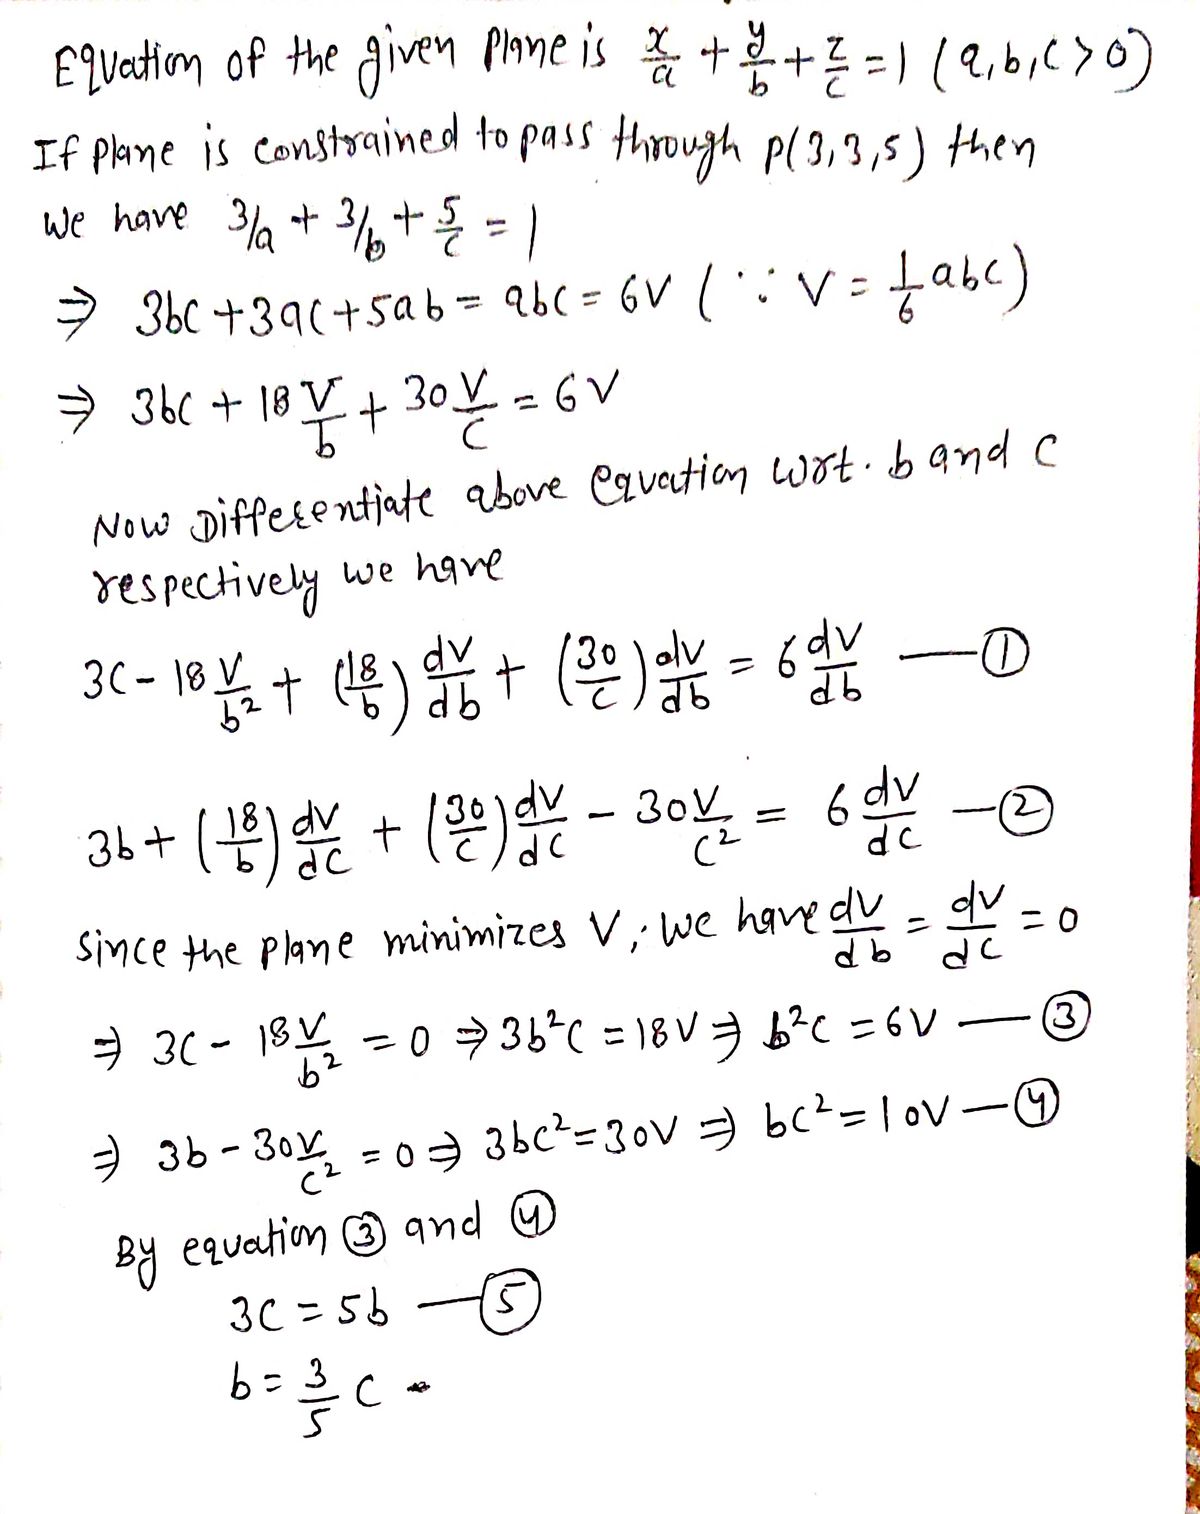 Equation of the given plane is x/a + y/b + z/c = 1 (a,b,c > 0)
If plane is constrained to pass through P(3,3,5) then
we have 3/a + 3/b + 5/c = 1
⇒ 3bc + 3ac + 5ab = abc = 6V (∵ V = 1/6 abc)
⇒ 3bc + 18 V/b + 30 V/c = 6V
Now Differentiate above equation wrt. b and c
respectively we have
3c - 18 V/b² + (18/b) dV/db + (30/c) dV/db = 6 dV/db —①
3b + (18/b) dV/dc + (30/c) dV/dc - 30V/c² = 6 dV/dc —②
Since the plane minimizes V, we have dV/db = dV/dc = 0
⇒ 3c - 18V/b² = 0 ⇒ 3b²c = 18V ⇒ b²c = 6V —③
⇒ 3b - 30V/c² = 0 ⇒ 3bc² = 30V ⇒ bc² = 10V —④
By equation ③ and ④
3c = 5b —⑤
b = 3/5 c